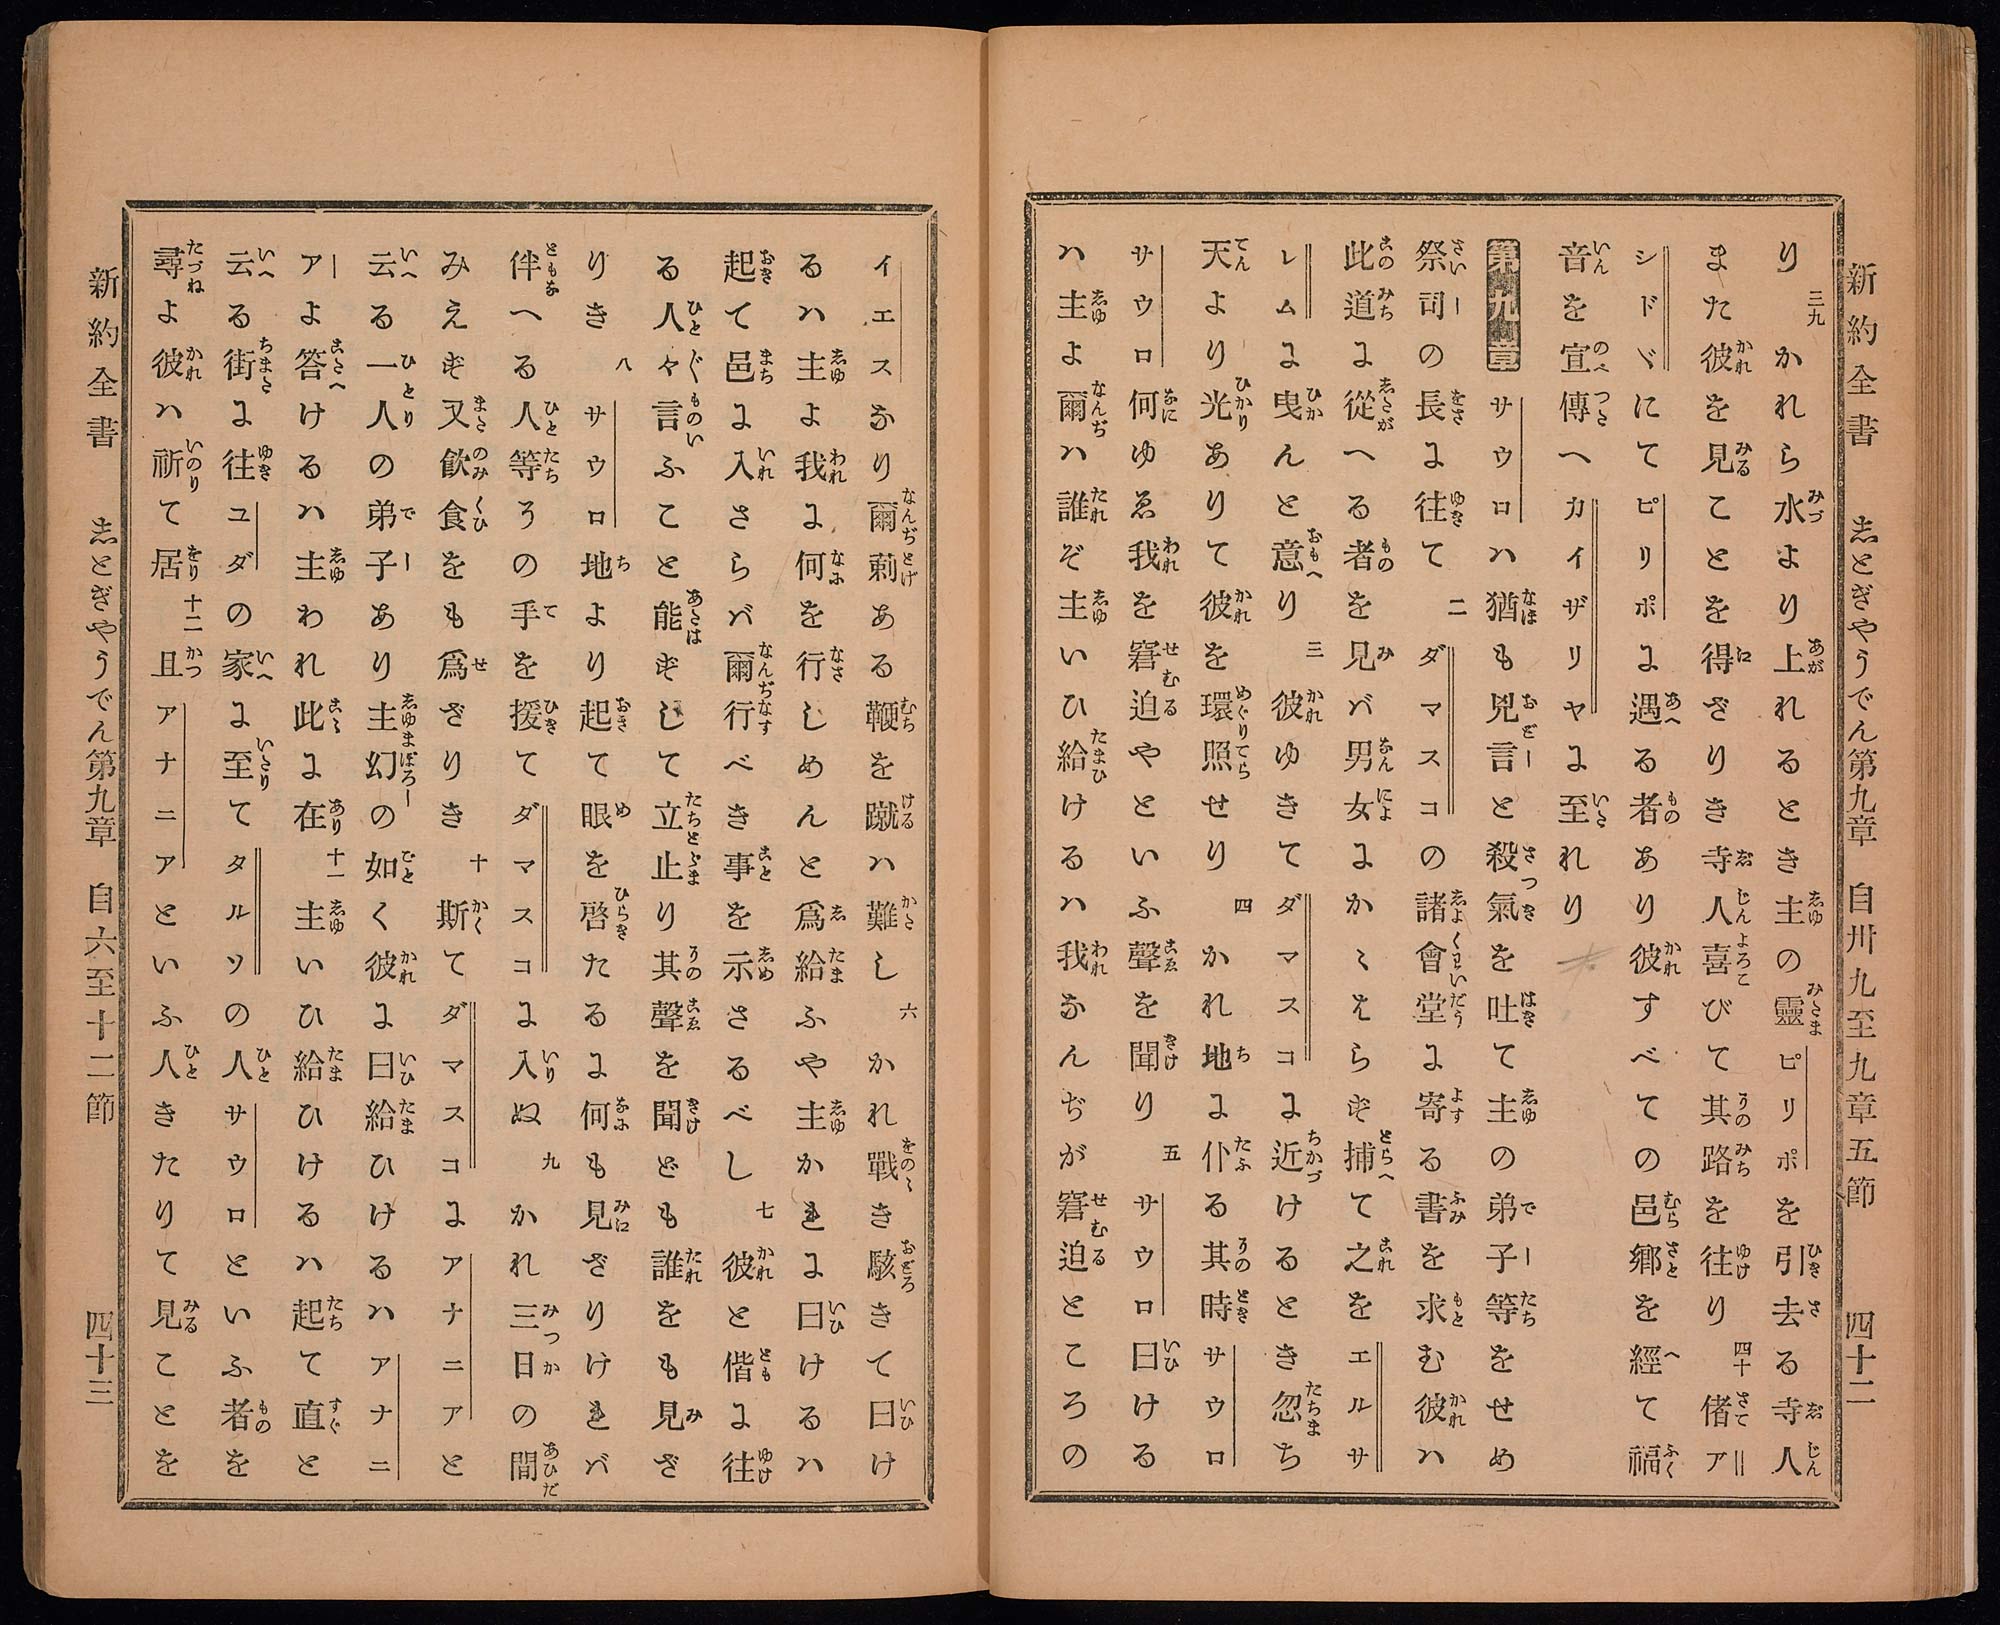 新約全書　志とぎやうでん第九章　自卅九至九章五節　四十二
り三九かれら水より上れるとき主の靈ピリポを引去る寺人
また彼を見ことを得ざりき寺人喜びて其路を往り四十偖ア
シドドにてピリポに遇る者あり彼すべての邑郷を經て福
音を宣傳へカイザリヤに至れり
第九章　サウロハ猶も兇言と殺氣を吐て主の弟子等をせめ
祭司の長に往て二ダマスコの諸會堂に寄る書を求む彼ハ
此道に從へる者を見バ男女にかゝはらず捕て之をエルサ
レムに曳んと意り三彼ゆきてダマスコに近けるとき忽ち
天より光ありて彼を環照せり四かれ地に仆る其時サウロ
サウロ何ゆゑ我を窘迫やといふ聲を聞り五サウロ曰ける
ハ主よ爾ハ誰ぞ主いひ給けるハ我なんぢが窘迫ところの
イエスなり爾莿ある鞭を蹴ハ難し六かれ戰き駭きて曰け
るハ主よ我に何を行しめんと爲給ふや主かれに曰けるハ
起て邑に入さらバ爾行べき事を示さるべし七彼と偕に往
る人々言ふこと能ずして立止り其聲を聞ども誰をも見ざ
りき八サウロ地より起て眼を啓たるに何も見ざりけれバ
伴へる人等その手を援てダマスコに入ぬ九かれ三日の間
みえず又飮食をも爲ざりき十斯てダマスコにアナニアと
云る一人の弟子あり主幻の如く彼に曰給ひけるハアナニ
アよ答けるハ主われ此に在十一主いひ給ひけるハ起て直と
云る街に往ユダの家に至てタルソの人サウロといふ者を
尋よ彼ハ祈て居十二且アナニアといふ人きたりて見ことを
新約全書　志とぎやうでん第九章　自六至十二節　四十三